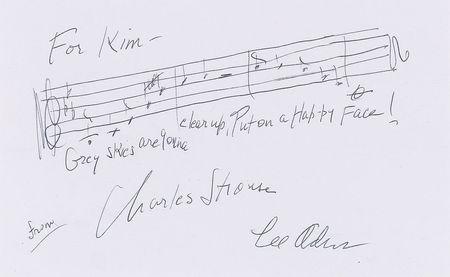 For Kim -
Grey skies are gonna clear up, Put on a Happy Face!
from
Charles Strouse
Lee Adams